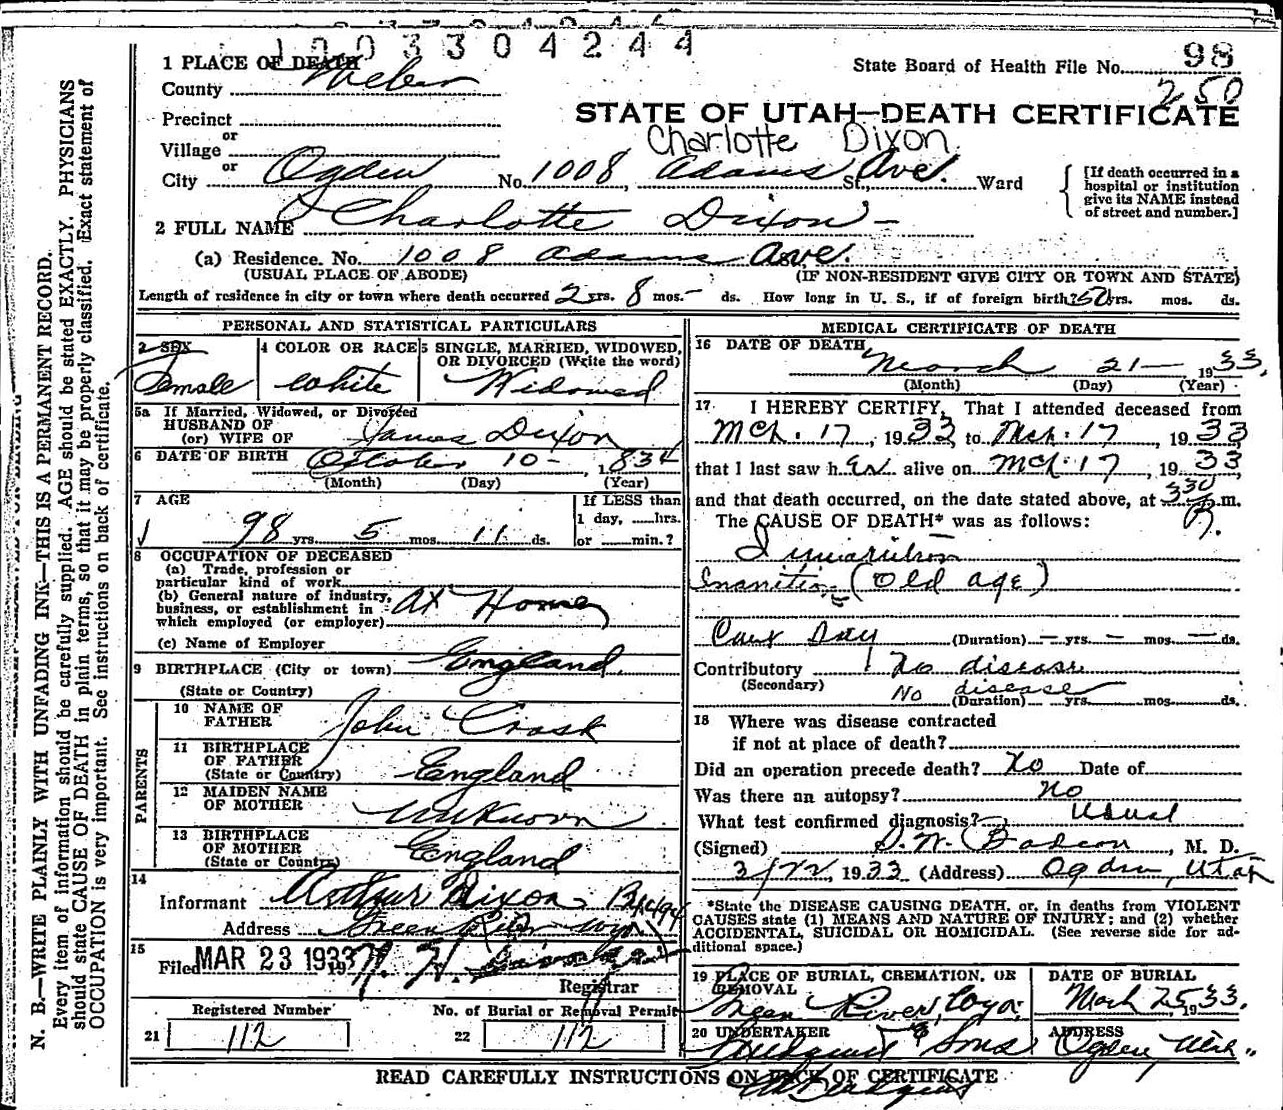 1003304244
1 PLACE OF DEATH
State Board of Health File No. 98
County Weber
250
STATE OF UTAH—DEATH CERTIFICATE
Precinct
or
Charlotte Dixon
Village
or
City Ogden No. 1008, Adams St., Ave. Ward
[If death occurred in a hospital or institution give its NAME instead of street and number.]
2 FULL NAME Charlotte Dixon
(a) Residence. No. 1008 Adams Ave.
(USUAL PLACE OF ABODE) (IF NON-RESIDENT GIVE CITY OR TOWN AND STATE)
Length of residence in city or town where death occurred 2 yrs. 8 mos. - ds. How long in U. S., if of foreign birth? 50 yrs. mos. ds.
PERSONAL AND STATISTICAL PARTICULARS
3 SEX
Female
4 COLOR OR RACE
White
5 SINGLE, MARRIED, WIDOWED, OR DIVORCED (Write the word)
Widowed
5a If Married, Widowed, or Divorced
HUSBAND OF
(or) WIFE OF James Dixon
6 DATE OF BIRTH October 10 - , 1834
(Month) (Day) (Year)
7 AGE
98 yrs. 5 mos. 11 ds.
If LESS than
1 day, ......hrs.
or ......min.?
8 OCCUPATION OF DECEASED
(a) Trade, profession or
particular kind of work
(b) General nature of industry,
business, or establishment in
which employed (or employer) At Home
(c) Name of Employer
9 BIRTHPLACE (City or town) England
(State or Country)
PARENTS
10 NAME OF FATHER John Crask
11 BIRTHPLACE OF FATHER (State or Country) England
12 MAIDEN NAME OF MOTHER Unknown
13 BIRTHPLACE OF MOTHER (State or Country) England
14
Informant Arthur Dixon
Address Green River Wyo
15
Filed MAR 23 1933
Registrar
Registered Number
21 112
No. of Burial or Removal Permit
22 112
MEDICAL CERTIFICATE OF DEATH
16 DATE OF DEATH
March 21 - 1933.
(Month) (Day) (Year)
17 I HEREBY CERTIFY, That I attended deceased from
Mch. 17, 1933 to Mch. 17, 1933
that I last saw her alive on Mch. 17, 1933,
and that death occurred, on the date stated above, at 330 P. m.
The CAUSE OF DEATH* was as follows:
Inanition (old age)
(Duration) — yrs. — mos. — ds.
Contributory No disease
(Secondary) No disease
(Duration) yrs. mos. ds.
18 Where was disease contracted
if not at place of death?
Did an operation precede death? No Date of
Was there an autopsy? No
What test confirmed diagnosis? Usual
(Signed) , M. D.
3/22, 1933 (Address) Ogden, Utah
*State the DISEASE CAUSING DEATH, or, in deaths from VIOLENT
CAUSES state (1) MEANS AND NATURE OF INJURY; and (2) whether
ACCIDENTAL, SUICIDAL OR HOMICIDAL. (See reverse side for ad-
ditional space.)
19 PLACE OF BURIAL, CREMATION, OR REMOVAL
Green River, Wyo.
DATE OF BURIAL
Mach 25, 1933.
20 UNDERTAKER
& Sons
ADDRESS
Ogden, Utah
READ CAREFULLY INSTRUCTIONS ON BACK OF CERTIFICATE
N. B.—WRITE PLAINLY WITH UNFADING INK—THIS IS A PERMANENT RECORD.
Every item of information should be carefully supplied. AGE should be stated EXACTLY. PHYSICIANS
should state CAUSE OF DEATH in plain terms, so that it may be properly classified. Exact statement of
OCCUPATION is very important. See instructions on back of certificate.